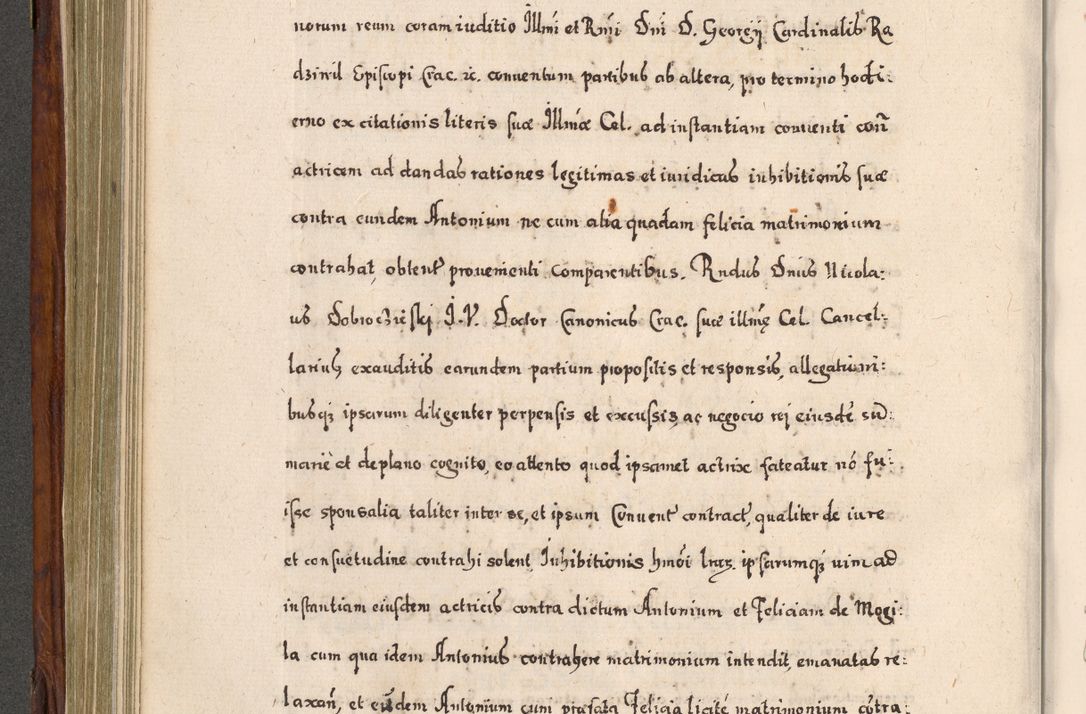 norum reum coram iuditio Illmi et Rmi Dni D. Georgij Cardinalis Ra
dziwil Episcopi Crac. &c. conuentum partibus ab altera, pro termino hodi:
erno ex citationis literis suæ Illmæ Cel. ad instantiam conuenti con̄
actricem ad dandas rationes legitimas et iuridicas inhibitionis suæ
contra eundem Antonium ne cum alia quadam felicia matrimonium
contrahat, obtent prouenienti comparentibus. Rndus Dnus Nicola:
us Dobrocieski J. V. Doctor Canonicus Crac. suæ illmę Cel. Cancel:
larius, exauditis earundem partium propositis et responsis, allegationi:
busq; ipsarum diligenter perpensis et excussis, ac negocio rej eiusdē su͞:
mariè et deplano cognito, eo attento quod ipsamet actrix fateatur nō fu:
isse sponsalia taliter inter se, et ipsum Conuent contract, qualiter de iure
et consuetudine contrahi solent, Inhibitionis hmōi lras. ipsarumq; uim ad
instantiam eiusdem actricis contra dictum Antonium et Feliciam de Mogi:
la cum qua idem Antonius contrahere matrimonium intendit, emanatas re:
laxan̄, et eūdem Antonium cum præfata Felicia licitè matrimonium cōtra: